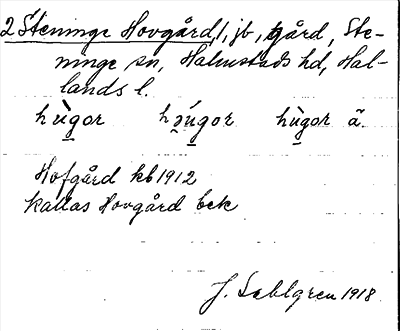 2 Steninge Hovgård, 1, jb, gård, Ste-
ninge sn, Halmstads hd, Hal-
lands l.
hù̲gor hə̯ú̲gor hù̲gor ã.
Hofgård kb 1912
kallas Hovgård bek
J. Sahlgren 1918.